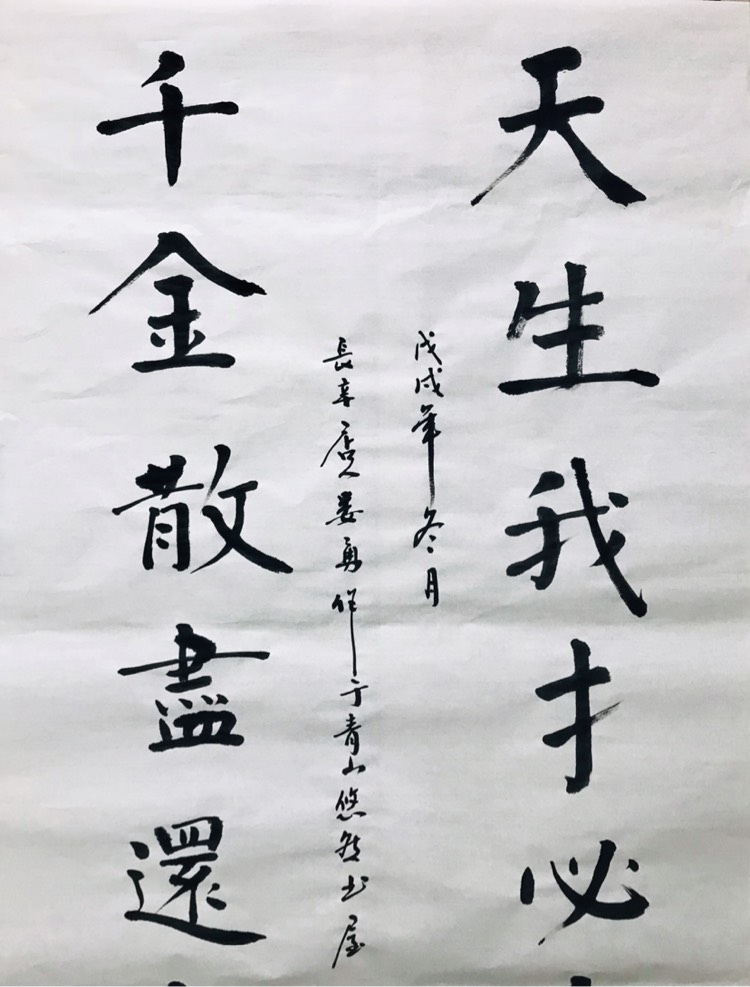 天生我才必
戊戌年冬月
長辛 婁勇作于青山悠然书屋
千金散盡還